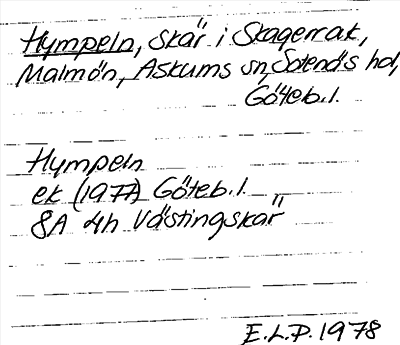 Hympeln, skär i Skagerrak,
Malmön, Askums sn, Sotenäs hd,
Göteb. l.
Hympeln
ek (1977) Göteb. l.
8A 4h Västingskär
E.L.P. 1978